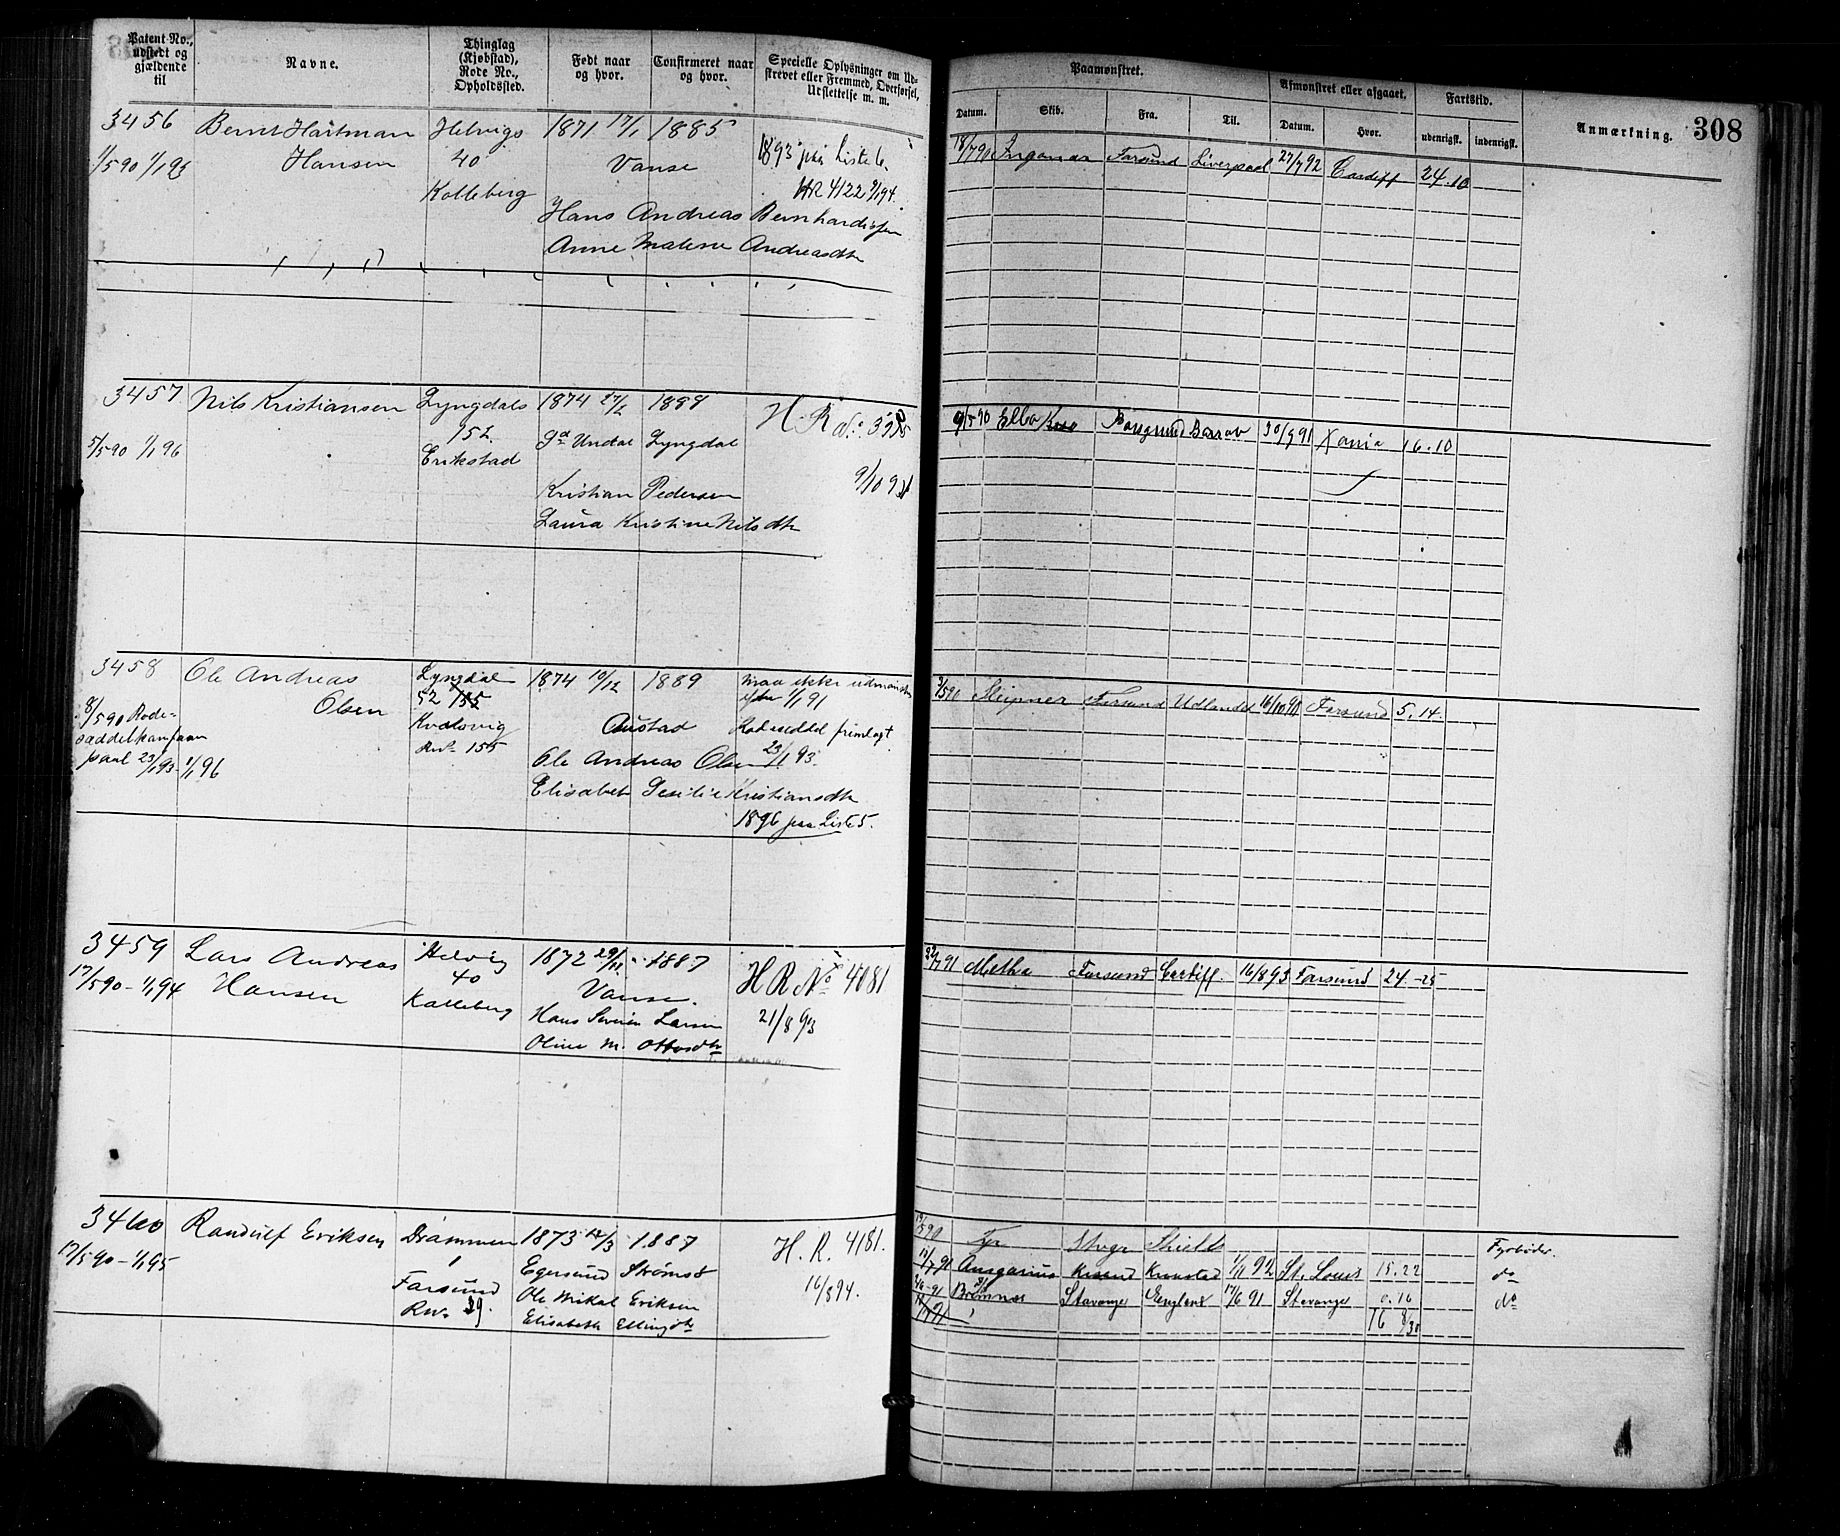 Patent No., udstedt og gjældende til
Navne.
Thinglag (Kjøbstad), Rode No., Opholdssted.
Født naar og hvor.
Confirmeret naar og hvor.
Specielle Oplysninger om Udskrevet eller Fremmed, Overførsel, Udslettelse m. m.
Paamønstret.
Datum.
Skib.
Fra.
Til.
Afmønstret eller afgaaet.
Datum.
Hvor.
Fartstid.
udenrigsk.
indenrigsk.
Anmærkning.
308
3456 Bernt Hartman Helvigs 1871 17/1 1885
1/5 90 1/1 93 Hansen 40 Vanse 1893 paa Liste 6.
Kolleberg HR 4122 9/1 94.
Hans Andreas Bernhardsen
Anne Malene Andreasdtr
18/7 90 Farsund Liverpool 27/7 92 Cardiff 24.10
3457 Nils Kristiansen Lyngdals 1874 27/2 1889
5/5 90 1/1 96 152 Undal Lyngdal
Erikstad
Kristian Pedersen
Laura Kristine Nilsdtr
9/5 90 Elba 30/9 91 16.10
3458 Ole Andreas Lyngdal 1874 10/12 1889 maa ikke udmønstres
Olsen 52 155 før 1/1 91
8/5 90 Rode- Kvalsvig Austad Rodeseddel fremlagt
seddel 155 23/1 93.
23/1 93 1/1 96 Ole Andreas Olsen
Elisabet Kristiansdtr
1896 paa Liste 5.
Sleipner Farsund Udlandet Farsund 5.14.
3459 Lars Andreas Helvig 1872 1887 H R No 4081
17/5 90 - 1/1 94 Hansen 40 Vanse. 21/8 93
Kalleberg Hans Larsen
Oline M. Ottosdtr
22/7 91 Metha Farsund Cardiff. 16/8 93 Farsund 24.-25
3460 Randulf Eriksen Drammen 1873 14/3 1887 H. R. 4181.
17/5 90 - 1/1 95 1 Egersund Strømsø 16/8 94.
Farsund Ole Mikal Eriksen
Rno 39 Elisabeth Ellingsdtr
Tyr Shields Fyrbøder.
Ansgarius Kronstad 1/11 92 St. Louis 15.22 do
Stavanger England 17/6 91 Stavanger 0.16 do